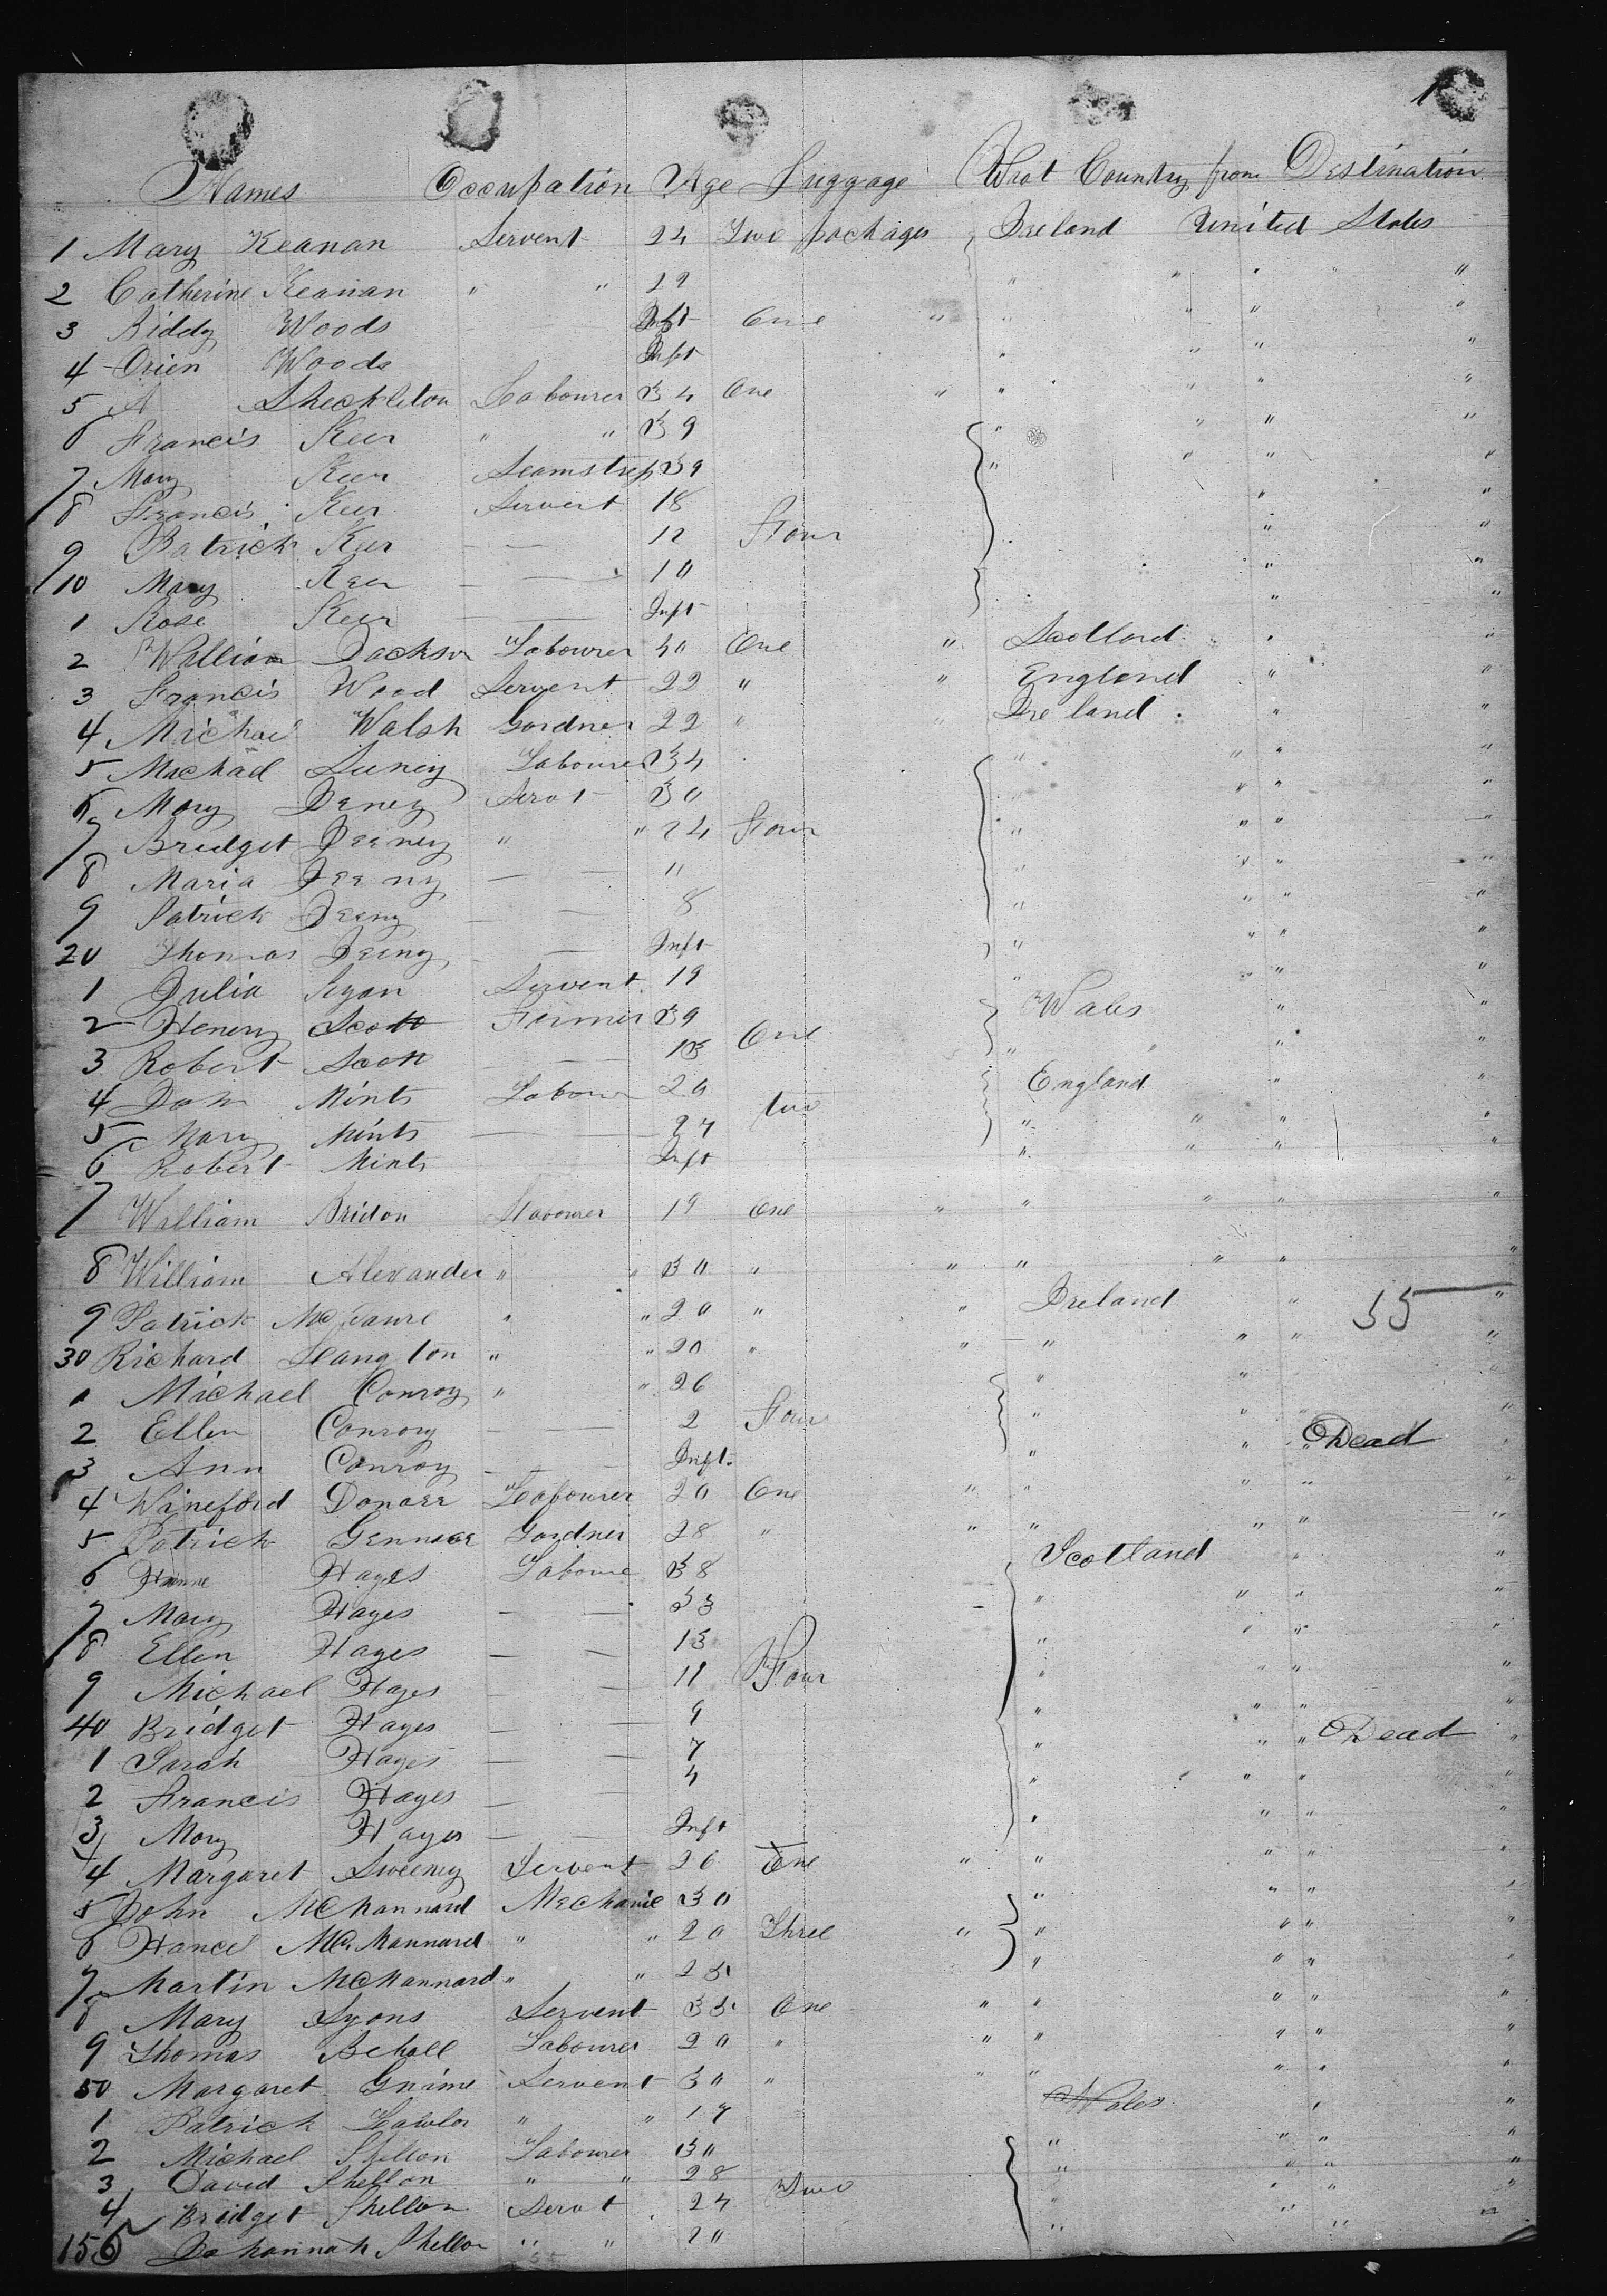 1
Names Occupation Age Luggage What Country from Destination
1 Mary Keanan Servent 24 Two packages Ireland United States
2 Catherine Keanan " " 19 " " " " "
3 Biddy Woods Inft One " " " " "
4 Woods Inft " " " "
5 A Sheckleton Labourer 34 One " " " " "
6 Francis Keer " " 39 " " " "
7 Mary Keer Seamstress 39 " " " "
8 Francis Keer Servent 18 " "
9 Patrick Keer — 12 Four " "
10 Mary Keer — 10 " "
1 Rose Keer — Inft " "
2 William Jackson Labourer 40 One " Scotland " "
3 Francis Wood Servent 22 " " England " "
4 Michael Walsh Gardner 22 " " Ireland " "
5 Machael Labourer 34 " " " "
6 Mary Deney Servt 30 " " " "
7 Bridget Deeney " " 24 Four " " " "
8 Maria Deeny — 11 " " " "
9 Patrick Deeny — 8 " " " "
20 Thomas Deeny — Inft " " " "
1 Julia Ryan Servent 19 " " " "
2 Henery Scott Farmer 39 One Wales " "
3 Robert Scott — 13 " " "
4 John Mints Labour 29 two England " "
5 Mary Mints — 27 " " " "
6 Robert Mints Inft " " " "
7 William Bridon Labourer 19 One " " " " "
8 William Alexander " " 30 " " " " " "
9 Patrick " " 20 " " Ireland " 55 "
30 Richard Langton " " 20 " " " " " "
1 Michael Conroy " " 26 " " "
2 Ellen Conroy — 2 Four " " " "
3 Ann Conroy — Inft. " " " Dead "
4 Labourer 20 One " " " " "
5 Patrick Gardner 28 " " " " " "
6 Hayes Laboure 38 Scotland " "
7 Mary Hayes — 33 " " " "
8 Ellen Hayes — 13 " " " "
9 Michael Hayes — 11 Four " " " "
40 Bridget Hayes — 9 " " " "
1 Sarah Hayes — 7 " " " Dead "
2 Francis Hayes — 4 " " " "
3 Mary Hayes — Inft " " " "
4 Margaret Sweeney Servent 26 One " " " " "
5 John McMannard Mechanic 30 " " " "
6 McMannard " " 20 Three " " " " "
7 Martin McMannard " " 25 " " " "
8 Mary Lyons Servent 35 One " " " " "
9 Thomas Labourer 20 " " " " " "
50 Margaret Servent 30 " " " " " "
1 Patrick Lawlor " " 17 Wales " "
2 Michael Shellon Labourer 30 " " " "
3 David Shellon " " 28 Two " " " "
4 Bridget Shellon Servt 24 " " " "
155 Johannah Shellon " " 20 " " " "